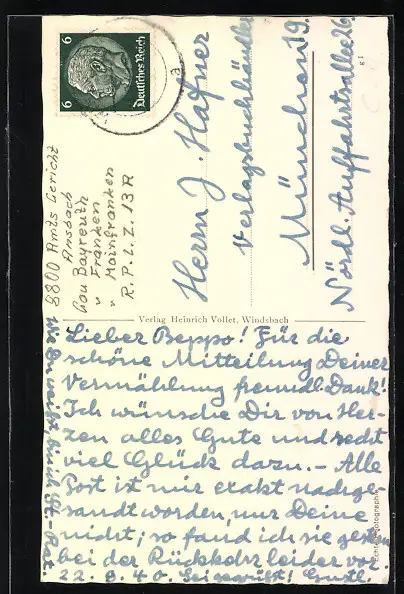 6 6
Deutsches Reich
Herrn J. Hafner
Verlagsbuchhändler
München 19.
Nördl. Auffahrtsallee 26.
8800 Amts Gericht
Ansbach
Gau Bayreuth
" Franken
" Mainfranken
R.P.L.Z. 13A
Verlag Heinrich Vollet, Windsbach
Lieber Beppo! Für die
schöne Mitteilung Deiner
Vermählung freundl. Dank!
Ich wünsche Dir von Her-
zen alles Gute und recht
viel Glück dazu. – Alle
Post ist mir exakt nachge-
sandt worden, nur Deine
nicht; so fand ich sie gestern
bei der Rückkehr leider vor.
22. 8. 40. Sei gegrüßt! Gustl.
Wie Du weißt, bin ich